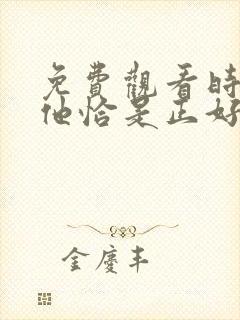 免費觀看時
他恰是正好
金慶丰